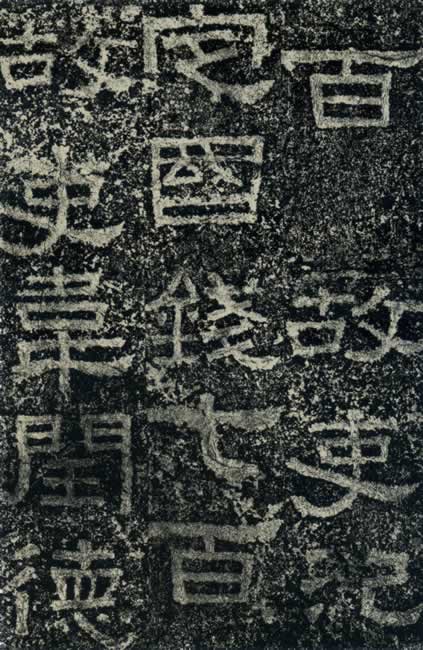 百故吏氾
定國錢七百
故吏韋閏德